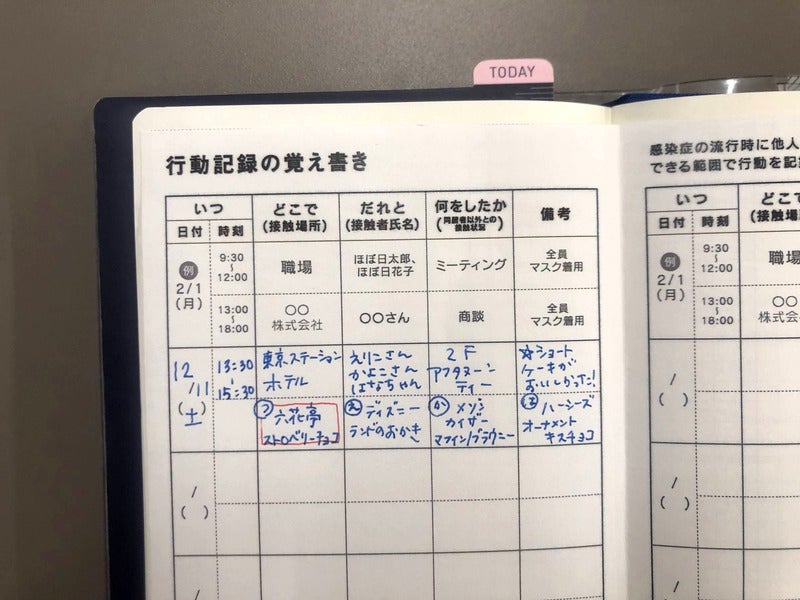 TODAY
行動記録の覚え書き
感染症の流行時に他人
できる範囲で行動を記
いつ
どこで
(接触場所)
だれと
(接触者氏名)
何をしたか
(同居者以外との
接触状況)
備考
日付
時刻
例
2/1
(月)
9:30
~
12:00
職場
ほぼ日太郎、
ほぼ日花子
ミーティング
全員
マスク着用
13:00
~
18:00
〇〇
株式会社
〇〇さん
商談
全員
マスク着用
12
/11
(土)
13:30
~
15:30
東京ステーション
ホテル
えりこさん
かよこさん
はなちゃん
2F
アフタヌーン
ティー
☆ショート
ケーキが
おいしかった!
六花亭
ストロベリーチョコ
え
ディズニー
ランドのおかき
か
メゾン
カイザー
マフィン/ブラウニー
は
ハーシーズ
オーナメント
キスチョコ
/
( )
/
いつ
どこで
(接触
日付
時刻
例
2/1
(月)
9:30
~
12:00
職場
13:00
~
18:00
〇〇
株式会
/
( )
/
( )
/